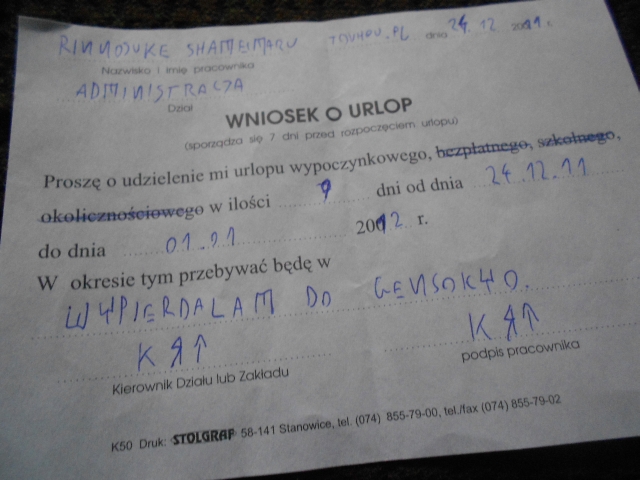 RINNOSUKE SHAMEIMARU TOUHOU.PL dnia 24.12 2011 r.
Nazwisko i imię pracownika
ADMINISTRACJA
Dział
WNIOSEK O URLOP
(sporządza się 7 dni przed rozpoczęciem urlopu)
Proszę o udzielenie mi urlopu wypoczynkowego, bezpłatnego, szkolnego,
okolicznościowego w ilości 9 dni od dnia 24.12.11
do dnia 01.01 2012 r.
W okresie tym przebywać będę w
WYPIERDALAM DO GENSOKYO.
Kierownik Działu lub Zakładu
podpis pracownika
K50 Druk: STOLGRAF 58-141 Stanowice, tel. (074) 855-79-00, tel./fax (074) 855-79-02